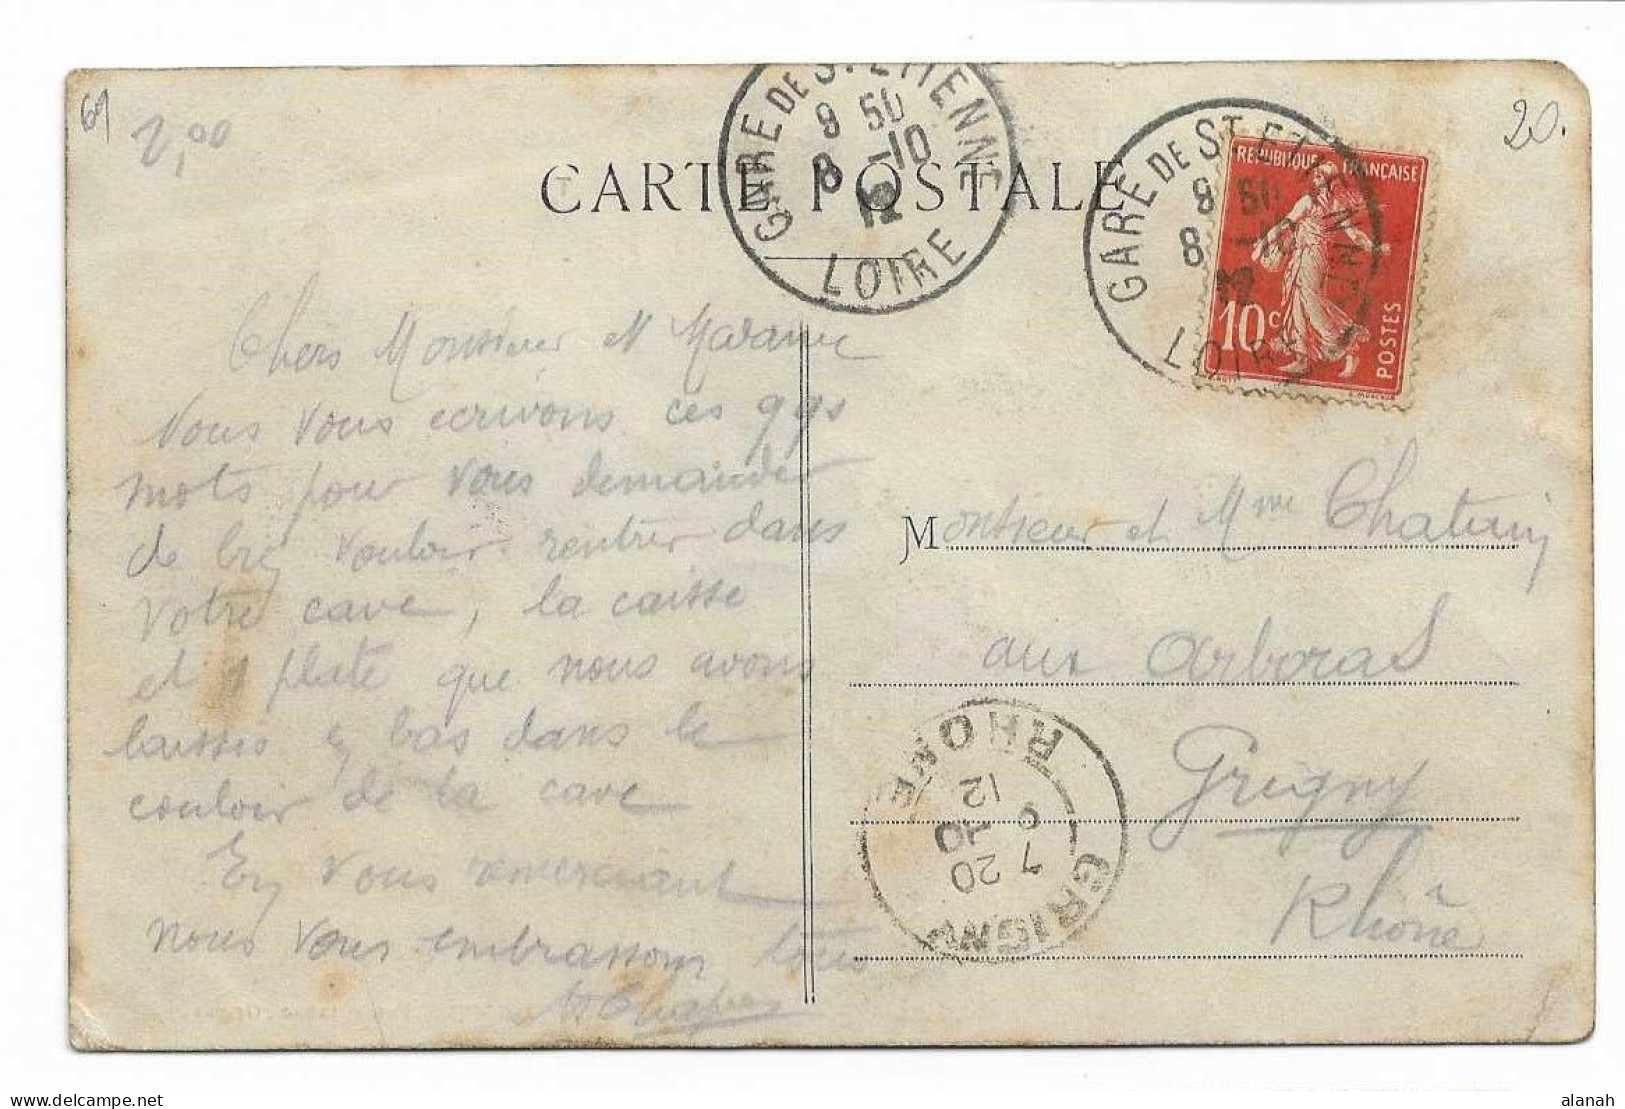 69
2,00
20.
CARTE POSTALE
GARE DE ST. ETIENNE
8 50
8 -10
12
LOIRE
GARE DE ST. ETIENNE
8 50
8 -10
12
LOIRE
REPUBLIQUE FRANÇAISE
10c
POSTES
Chers Monsieur et Madame
Nous vous ecrivons ces qqs
mots pour vous demander
de bien vouloir rentrer dans
votre cave, la caisse
et 1 plate que nous avons
laisses en bas dans le
couloir de la cave
En vous remerciant
nous vous embrassons tous
Monsieur et Mme
aux Arboras
Grigny
Rhône
GRIGNY
7 20
9
-10
12
RHONE
alanah